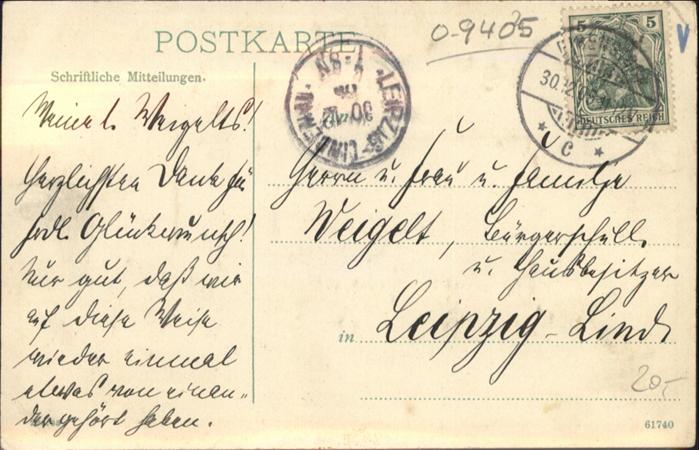 POSTKARTE
0-9405
5 5
DEUTSCHES REICH
30.12.
C
LEIPZIG-LINDENAU
30.12.
7-8N
Schriftliche Mitteilungen.
Meine l. Weigelts!
Herzlichsten Dank für
frdl. Glückwunsch!
Nur gut, daß wir
auf diese Weise
wieder einmal
etwas von einan-
der gehört haben.
Herrn u. Frau u. Familie
Weigelt, Bürgerschull.
u. Hausbesitzer
in Leipzig-Lind.
20,-
61740